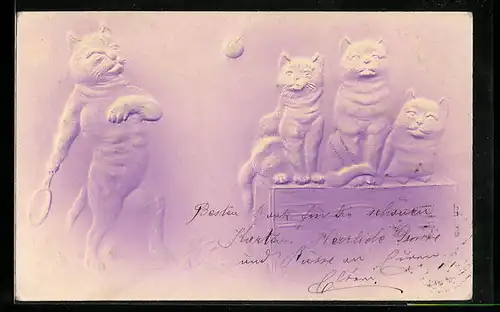 Besten Dank für die schönen
Karten. Herzliche Grüsse
und Küsse an
Eltern.